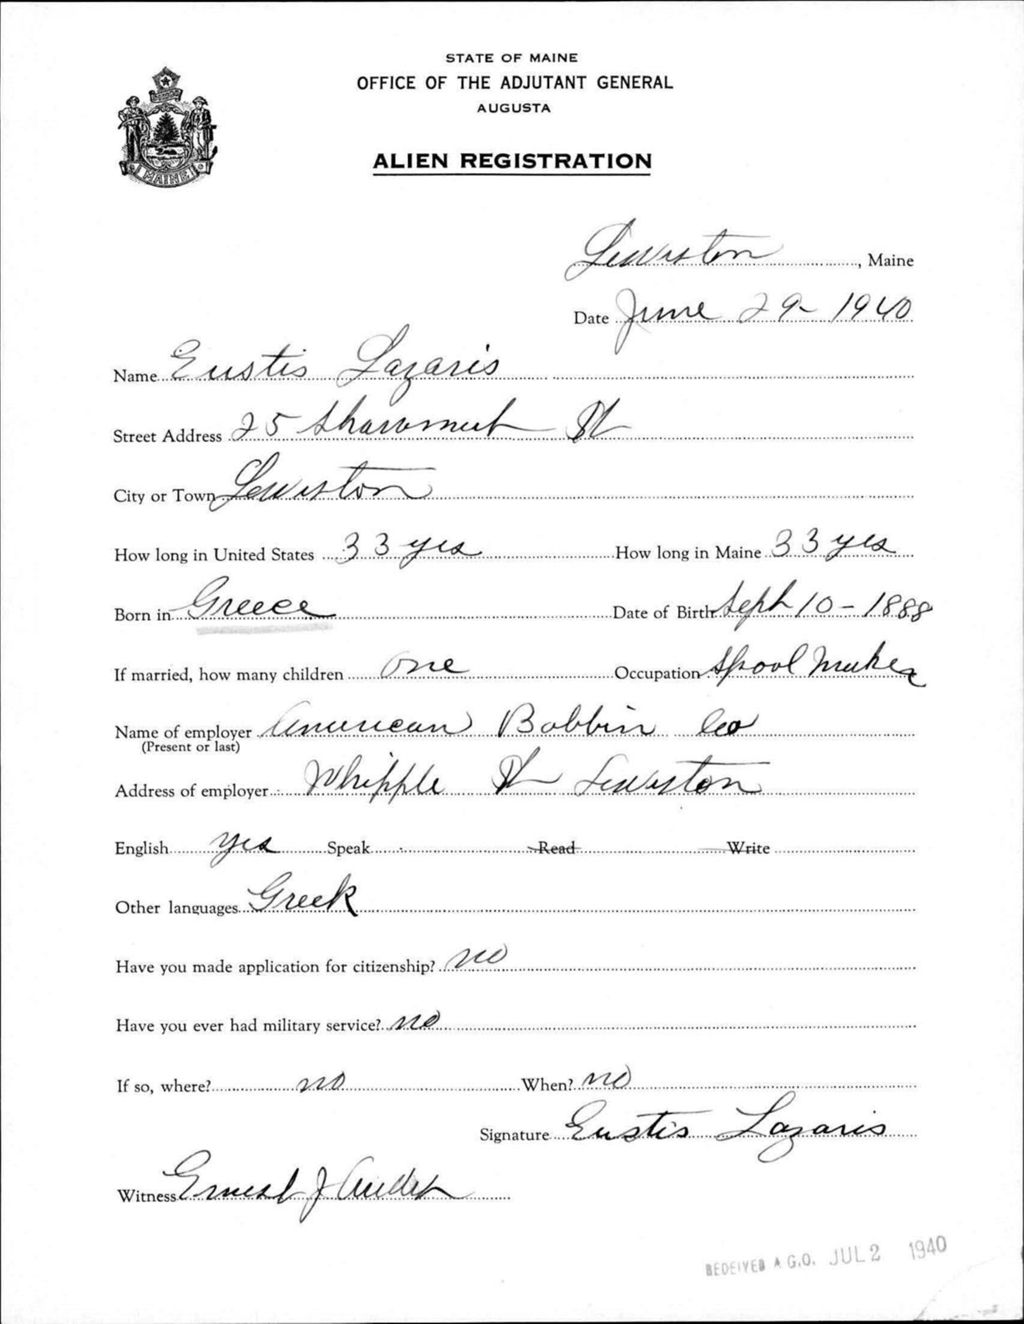 STATE OF MAINE
OFFICE OF THE ADJUTANT GENERAL
AUGUSTA
ALIEN REGISTRATION
MAINE
Lewiston, Maine
Date June 29-1940
Name Eustis Lazaris
Street Address 25 Shawmut St
City or Town Lewiston
How long in United States 33 yrs How long in Maine 33 yrs
Born in Greece Date of Birth Sept 10-1888
If married, how many children one Occupation Spool Maker
Name of employer American Bobbin Co
(Present or last)
Address of employer Whipple St Lewiston
English yes Speak Read Write
Other languages Greek
Have you made application for citizenship? no
Have you ever had military service? no
If so, where? no When? no
Signature Eustis Lazaris
Witness Ernest J
RECEIVED A.G.O. JUL 2 1940